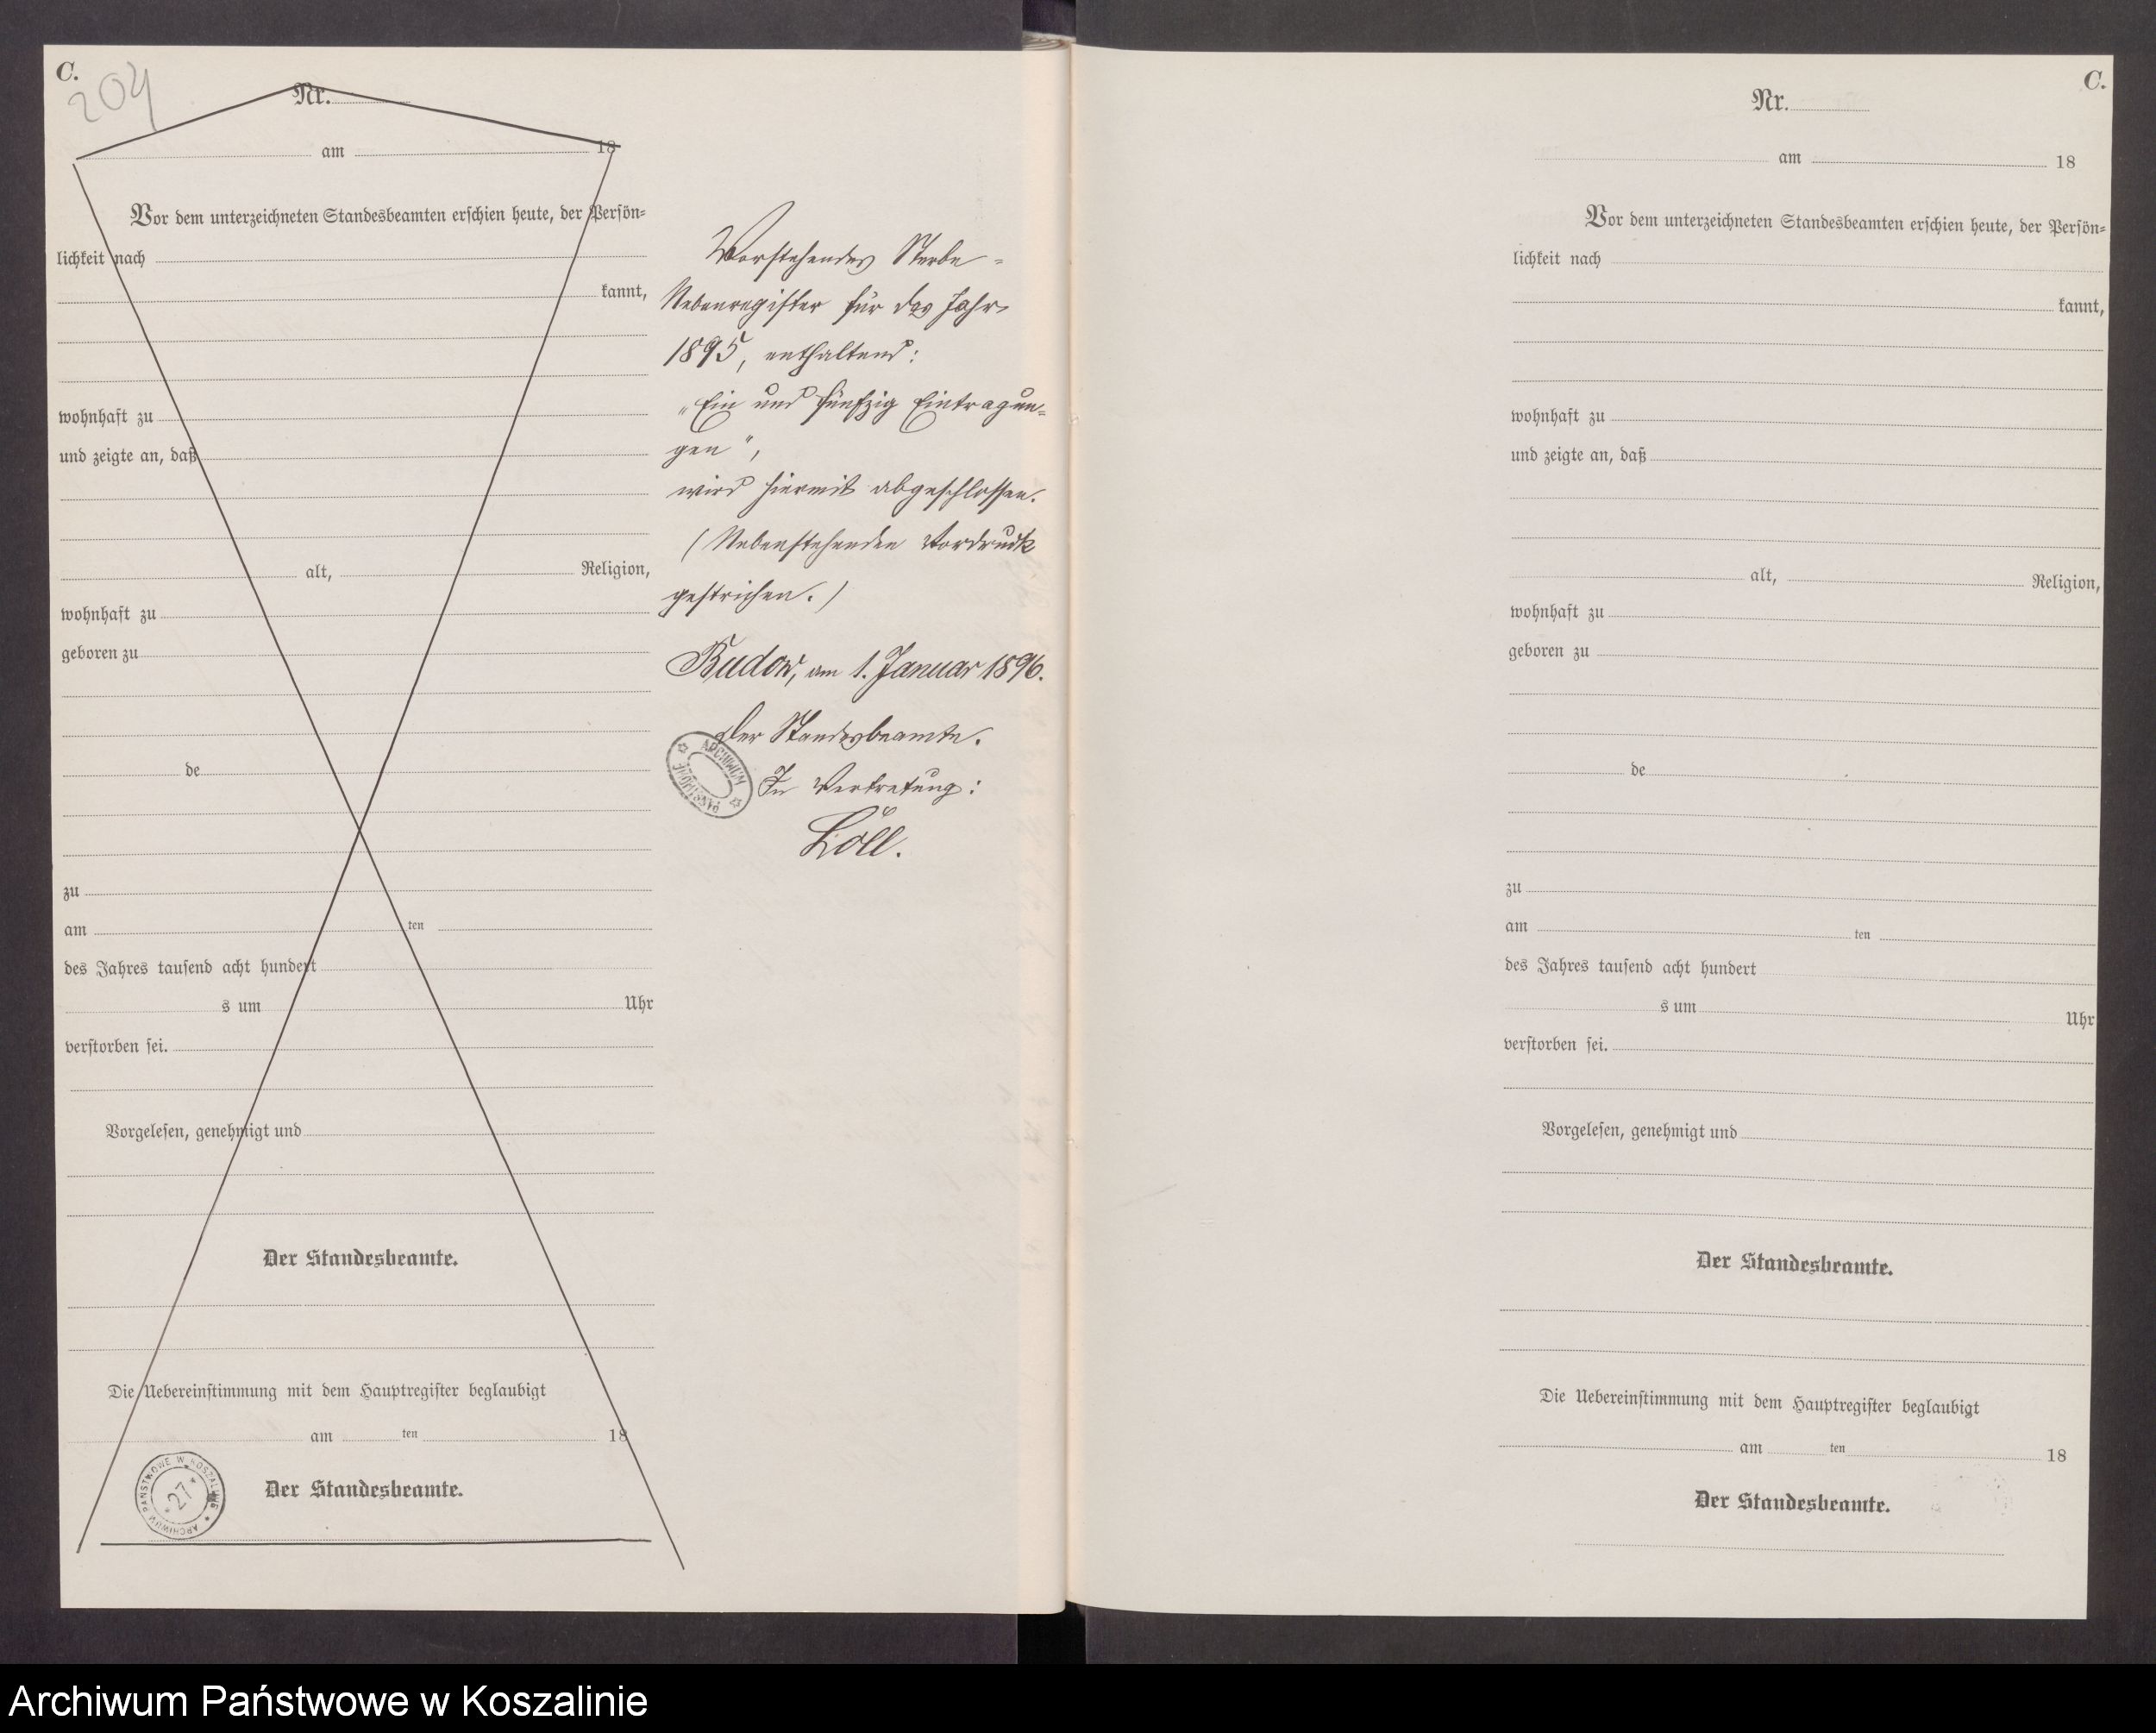 C.
204
Nr.
am 18
Vor dem unterzeichneten Standesbeamten erschien heute, der Persön-
lichkeit nach
kannt,
wohnhaft zu
und zeigte an, daß
alt, Religion,
wohnhaft zu
geboren zu
de
zu
am ten
des Jahres tausend acht hundert
s um Uhr
verstorben sei.
Vorgelesen, genehmigt und
Der Standesbeamte.
Die Uebereinstimmung mit dem Hauptregister beglaubigt
am ten 18
Der Standesbeamte.
ARCHIWUM PAŃSTWOWE W KOSZALINIE
27
Vorstehendes Sterbe-
Nebenregister für das Jahr
1895, enthaltend:
„Ein und fünfzig Eintragun-
gen",
wird hiermit abgeschlossen.
(Nebenstehenden Vordruck
gestrichen.)
Budow, am 1. Januar 1896.
Der Standesbeamte.
ARCHIWUM PAŃSTWOWE
In Vertretung:
Löll.
C.
Nr.
am 18
Vor dem unterzeichneten Standesbeamten erschien heute, der Persön-
lichkeit nach
kannt,
wohnhaft zu
und zeigte an, daß
alt, Religion,
wohnhaft zu
geboren zu
de
zu
am ten
des Jahres tausend acht hundert
s um Uhr
verstorben sei.
Vorgelesen, genehmigt und
Der Standesbeamte.
Die Uebereinstimmung mit dem Hauptregister beglaubigt
am ten 18
Der Standesbeamte.
Archiwum Państwowe w Koszalinie